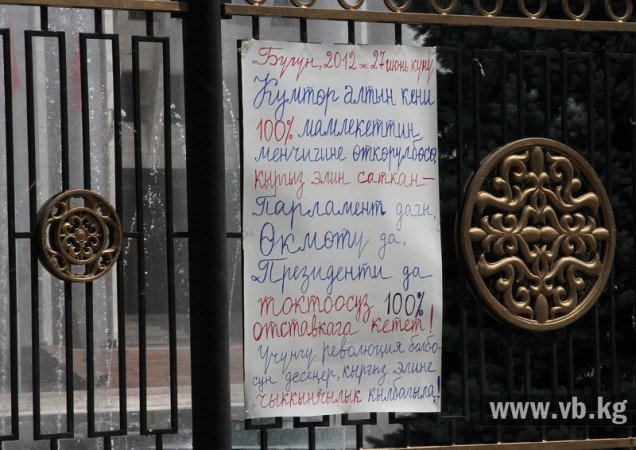 Бүгүн, 2012-ж 27 июнь күнү
Кумтөр алтын кени
100% мамлекеттин
менчигине өткөрүлбөсө,
кыргыз элин саткан—
Парламент дагы,
Өкмөтү да,
Президенти да
токтоосуз 100%
отставкага кетет!
Үчүнчү революция болбо-
сун десеңер, кыргыз элине
чыккынчылык кылбагыла!!
www.vb.kg